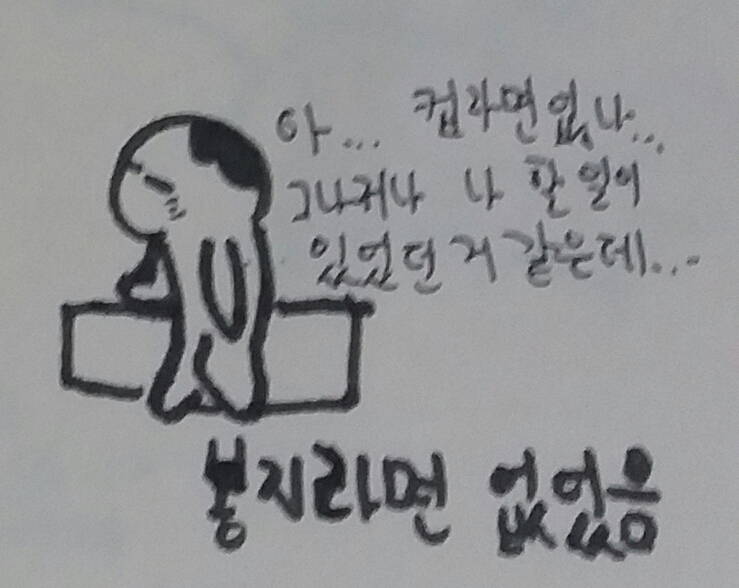 아... 컵라면 없나...
그나저나 나 할 일이
있었던 거 같은데...
봉지라면 없었음